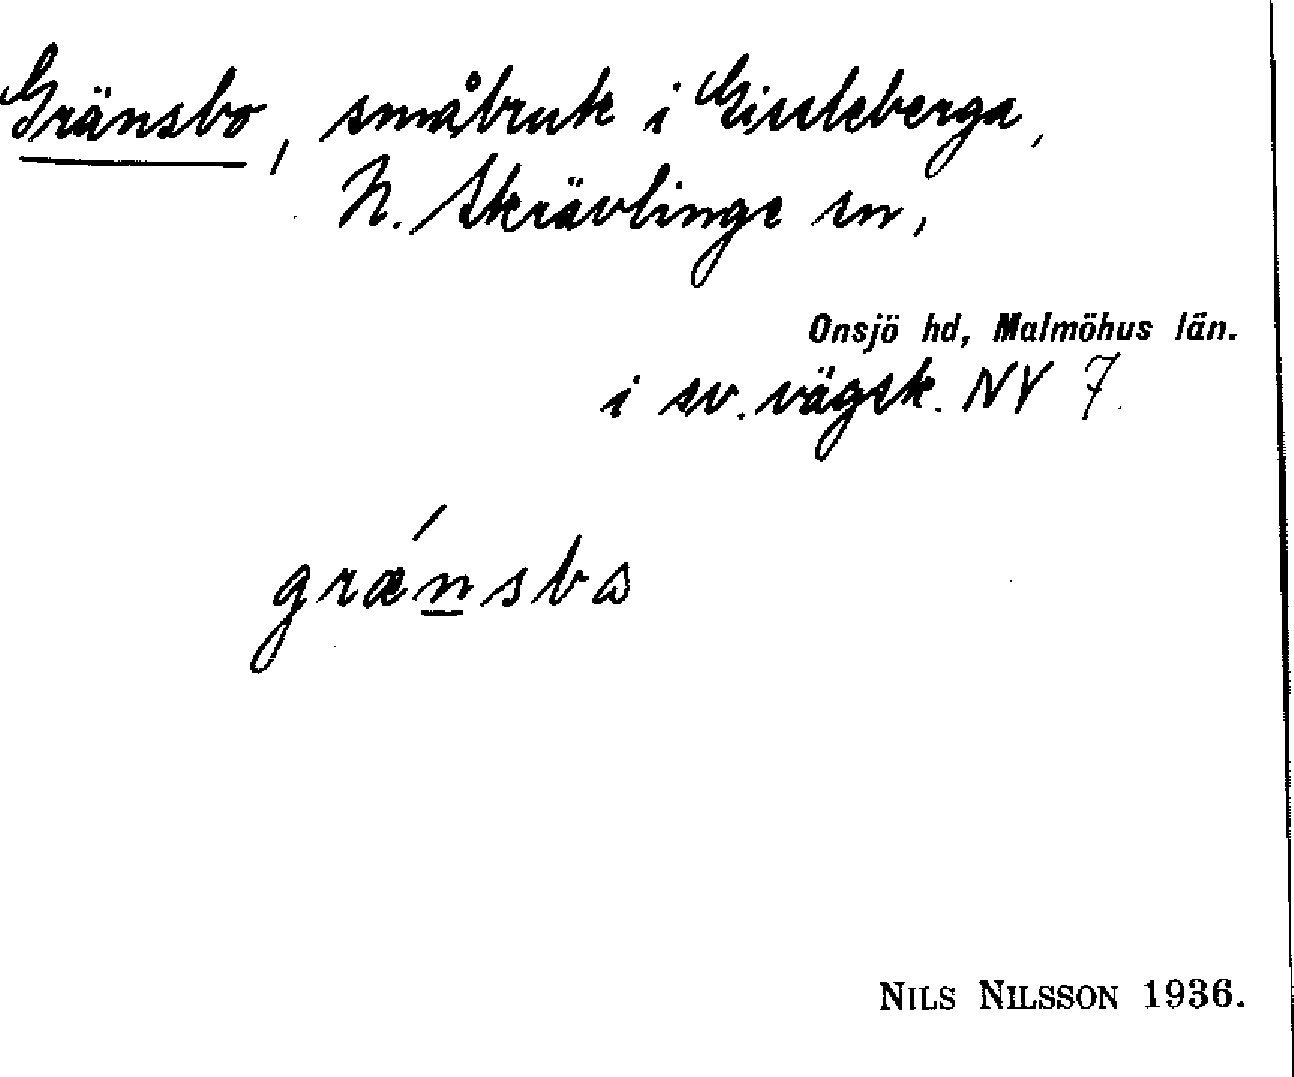 Gränsbo, småbruk i Gissleberga,
N. Skrävlinge sn,
Onsjö hd, Malmöhus län.
i sv. vägsk. NV 7.
grænsbɷ
NILS NILSSON 1936.